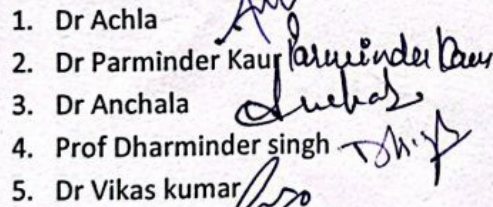 1. Dr Achla
2. Dr Parminder Kaur Parminder Kaur
3. Dr Anchala
4. Prof Dharminder singh
5. Dr Vikas kumar